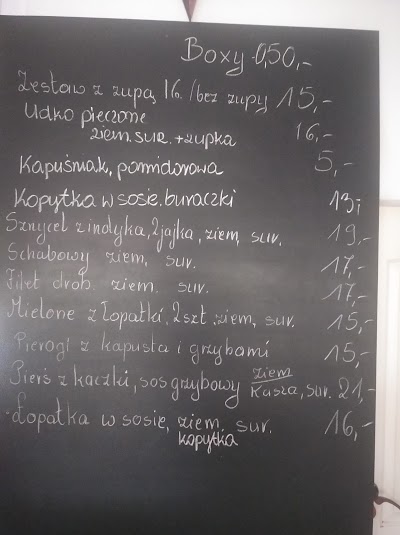 Boxy 0,50,-
Zestaw z zupą 16. /bez zupy 15,-
Udko pieczone
ziem. sur. + zupka 16,-
Kapuśniak, pomidorowa 5,-
Kopytka w sosie. buraczki 13,-
Sznycel z indyka, 2jajka, ziem, sur. 19,-
Schabowy ziem, sur. 17,-
Filet drob. ziem. sur. 17,-
Mielone z łopatki, 2szt, ziem, sur. 15,-
Pierogi z kapusta i grzybami 15,-
ziem
Pierś z kaczki, sos grzybowy kasza, sur. 21,-
Łopatka w sosie, ziem, sur. 16,-
kopytka